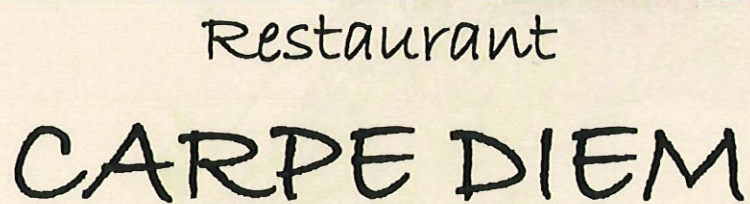 Restaurant
CARPE DIEM